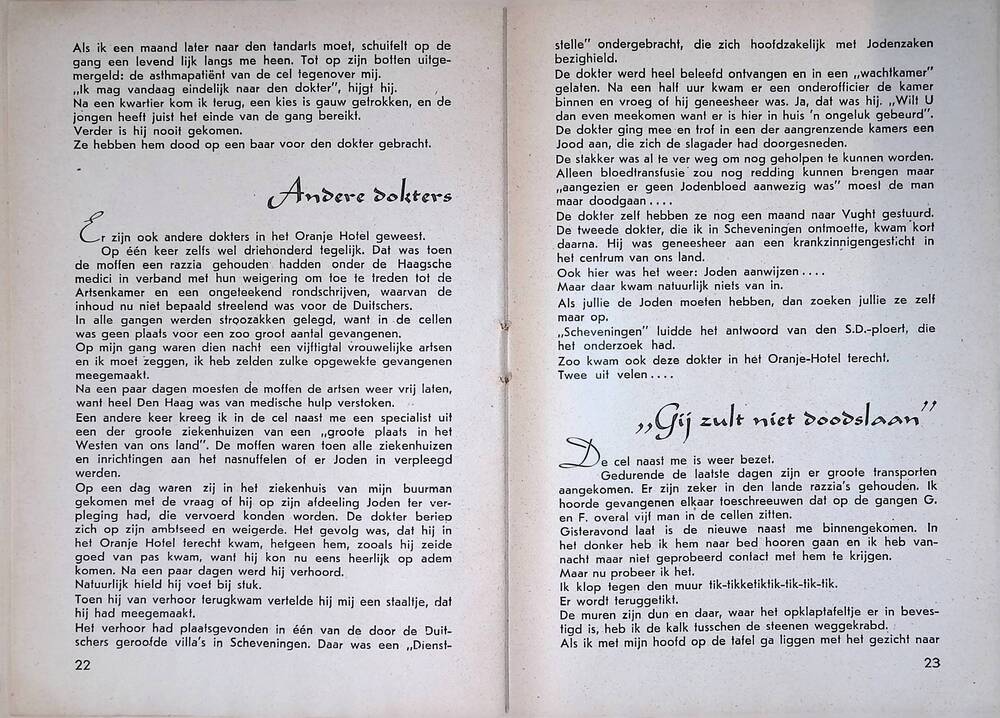 Als ik een maand later naar den tandarts moet, schuifelt op de
gang een levend lijk langs me heen. Tot op zijn botten uitge-
mergeld: de asthmapatiënt van de cel tegenover mij.
„Ik mag vandaag eindelijk naar den dokter”, hijgt hij.
Na een kwartier kom ik terug, een kies is gauw getrokken, en de
jongen heeft juist het einde van de gang bereikt.
Verder is hij nooit gekomen.
Ze hebben hem dood op een baar voor den dokter gebracht.
Andere dokters
Er zijn ook andere dokters in het Oranje Hotel geweest.
Op één keer zelfs wel driehonderd tegelijk. Dat was toen
de moffen een razzia gehouden hadden onder de Haagsche
medici in verband met hun weigering om toe te treden tot de
Artsenkamer en een ongeteekend rondschrijven, waarvan de
inhoud nu niet bepaald streelend was voor de Duitschers.
In alle gangen werden stroozakken gelegd, want in de cellen
was geen plaats voor een zoo groot aantal gevangenen.
Op mijn gang waren dien nacht een vijftigtal vrouwelijke artsen
en ik moet zeggen, ik heb zelden zulke opgewekte gevangenen
meegemaakt.
Na een paar dagen moesten de moffen de artsen weer vrij laten,
want heel Den Haag was van medische hulp verstoken.
Een andere keer kreeg ik in de cel naast me een specialist uit
een der groote ziekenhuizen van een „groote plaats in het
Westen van ons land”. De moffen waren toen alle ziekenhuizen
en inrichtingen aan het nasnuffelen of er Joden in verpleegd
werden.
Op een dag waren zij in het ziekenhuis van mijn buurman
gekomen met de vraag of hij op zijn afdeeling Joden ter ver-
pleging had, die vervoerd konden worden. De dokter beriep
zich op zijn ambtseed en weigerde. Het gevolg was, dat hij in
het Oranje Hotel terecht kwam, hetgeen hem, zooals hij zeide
goed van pas kwam, want hij kon nu eens heerlijk op adem
komen. Na een paar dagen werd hij verhoord.
Natuurlijk hield hij voet bij stuk.
Toen hij van verhoor terugkwam vertelde hij mij een staaltje, dat
hij had meegemaakt.
Het verhoor had plaatsgevonden in één van de door de Duit-
schers geroofde villa's in Scheveningen. Daar was een „Dienst-
22
stelle” ondergebracht, die zich hoofdzakelijk met Jodenzaken
bezighield.
De dokter werd heel beleefd ontvangen en in een „wachtkamer”
gelaten. Na een half uur kwam er een onderofficier de kamer
binnen en vroeg of hij geneesheer was. Ja, dat was hij. „Wilt U
dan even meekomen want er is hier in huis 'n ongeluk gebeurd”.
De dokter ging mee en trof in een der aangrenzende kamers een
Jood aan, die zich de slagader had doorgesneden.
De stakker was al te ver weg om nog geholpen te kunnen worden.
Alleen bloedtransfusie zou nog redding kunnen brengen maar
„aangezien er geen Jodenbloed aanwezig was” moest de man
maar doodgaan . . . .
De dokter zelf hebben ze nog een maand naar Vught gestuurd.
De tweede dokter, die ik in Scheveningen ontmoette, kwam kort
daarna. Hij was geneesheer aan een krankzinnigengesticht in
het centrum van ons land.
Ook hier was het weer: Joden aanwijzen . . . .
Maar daar kwam natuurlijk niets van in.
Als jullie de Joden moeten hebben, dan zoeken jullie ze zelf
maar op.
„Scheveningen” luidde het antwoord van den S.D.-ploert, die
het onderzoek had.
Zoo kwam ook deze dokter in het Oranje-Hotel terecht.
Twee uit velen . . . .
„Gij zult niet doodslaan”
De cel naast me is weer bezet.
Gedurende de laatste dagen zijn er groote transporten
aangekomen. Er zijn zeker in den lande razzia's gehouden. Ik
hoorde gevangenen elkaar toeschreeuwen dat op de gangen G.
en F. overal vijf man in de cellen zitten.
Gisteravond laat is de nieuwe naast me binnengekomen. In
het donker heb ik hem naar bed hooren gaan en ik heb van-
nacht maar niet geprobeerd contact met hem te krijgen.
Maar nu probeer ik het.
Ik klop tegen den muur tik-tikketiktik-tik-tik-tik.
Er wordt teruggetikt.
De muren zijn dun en daar, waar het opklaptafeltje er in beves-
tigd is, heb ik de kalk tusschen de steenen weggekrabd.
Als ik met mijn hoofd op de tafel ga liggen met het gezicht naar
23